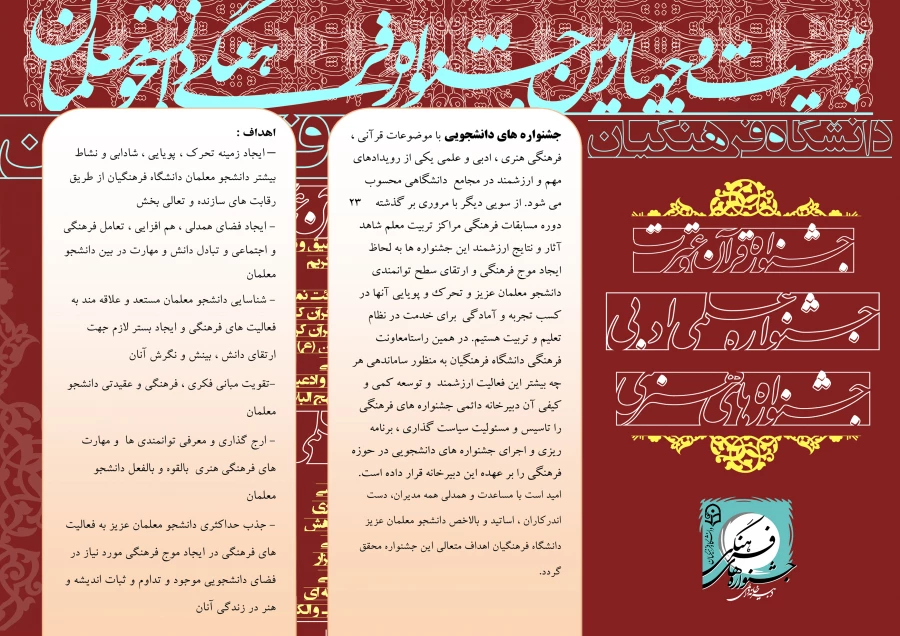 بیست و چهارمین جشنواره فرهنگی دانشجو معلمان
دانشگاه فرهنگیان
جشنواره قرآن و عترت
جشنواره علمی ادبی
جشنواره های هنری
فرهنگی
جشنواره های
جشنواره های دانشجویی با موضوعات قرآنی ،
فرهنگی هنری ، ادبی و علمی یکی از رویدادهای
مهم و ارزشمند در مجامع دانشگاهی محسوب
می شود. از سویی دیگر با مروری بر گذشته ۲۳
دوره مسابقات فرهنگی مراکز تربیت معلم شاهد
آثار و نتایج ارزشمند این جشنواره ها به لحاظ
ایجاد موج فرهنگی و ارتقای سطح توانمندی
دانشجو معلمان عزیز و تحرک و پویایی آنها در
کسب تجربه و آمادگی برای خدمت در نظام
تعلیم و تربیت هستیم. در همین راستامعاونت
فرهنگی دانشگاه فرهنگیان به منظور ساماندهی هر
چه بیشتر این فعالیت ارزشمند و توسعه کمی و
کیفی آن دبیرخانه دائمی جشنواره های فرهنگی
را تاسیس و مسئولیت سیاست گذاری ، برنامه
ریزی و اجرای جشنواره های دانشجویی در حوزه
فرهنگی را بر عهده این دبیرخانه قرار داده است.
امید است با مساعدت و همدلی همه مدیران، دست
اندرکاران ، اساتید و بالاخص دانشجو معلمان عزیز
دانشگاه فرهنگیان اهداف متعالی این جشنواره محقق
گردد.
اهداف :
– ایجاد زمینه تحرک ، پویایی ، شادابی و نشاط
بیشتر دانشجو معلمان دانشگاه فرهنگیان از طریق
رقابت های سازنده و تعالی بخش
- ایجاد فضای همدلی ، هم افزایی ، تعامل فرهنگی
و اجتماعی و تبادل دانش و مهارت در بین دانشجو
معلمان
- شناسایی دانشجو معلمان مستعد و علاقه مند به
فعالیت های فرهنگی و ایجاد بستر لازم جهت
ارتقای دانش ، بینش و نگرش آنان
-تقویت مبانی فکری ، فرهنگی و عقیدتی دانشجو
معلمان
- ارج گذاری و معرفی توانمندی ها و مهارت
های فرهنگی هنری بالقوه و بالفعل دانشجو
معلمان
- جذب حداکثری دانشجو معلمان عزیز به فعالیت
های فرهنگی در ایجاد موج فرهنگی مورد نیاز در
فضای دانشجویی موجود و تداوم و ثبات اندیشه و
هنر در زندگی آنان